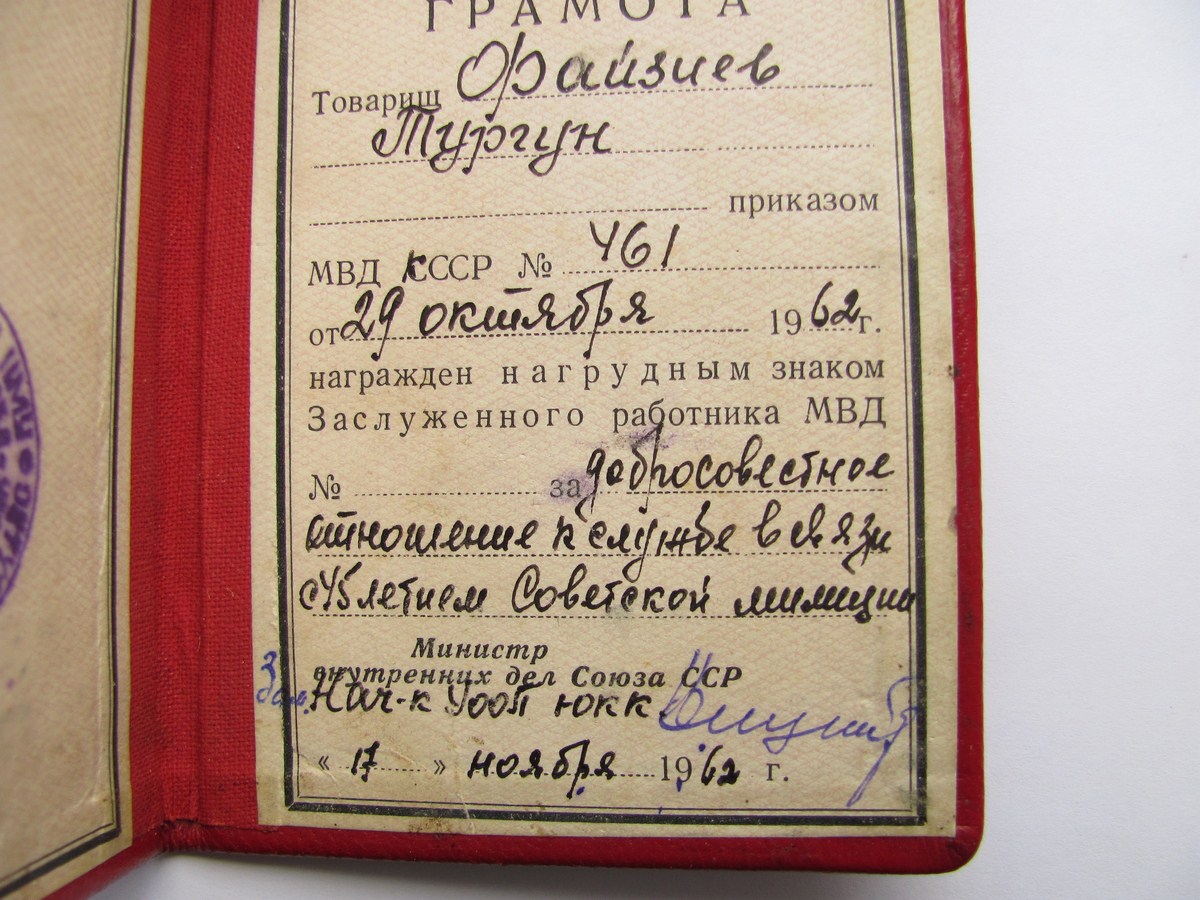 ГРАМОТА
Товарищ Файзиев
Тургун
приказом
МВД КССР № 461
от 29 октября 1962 г.
награжден нагрудным знаком
Заслуженного работника МВД
№ за добросовестное
отношение к службе в связи
с 45 летием Советской милиции
Министр
внутренних дел Союза ССР
Зам. Нач-к УООП ЮКК
« 17 » ноября 1962 г.